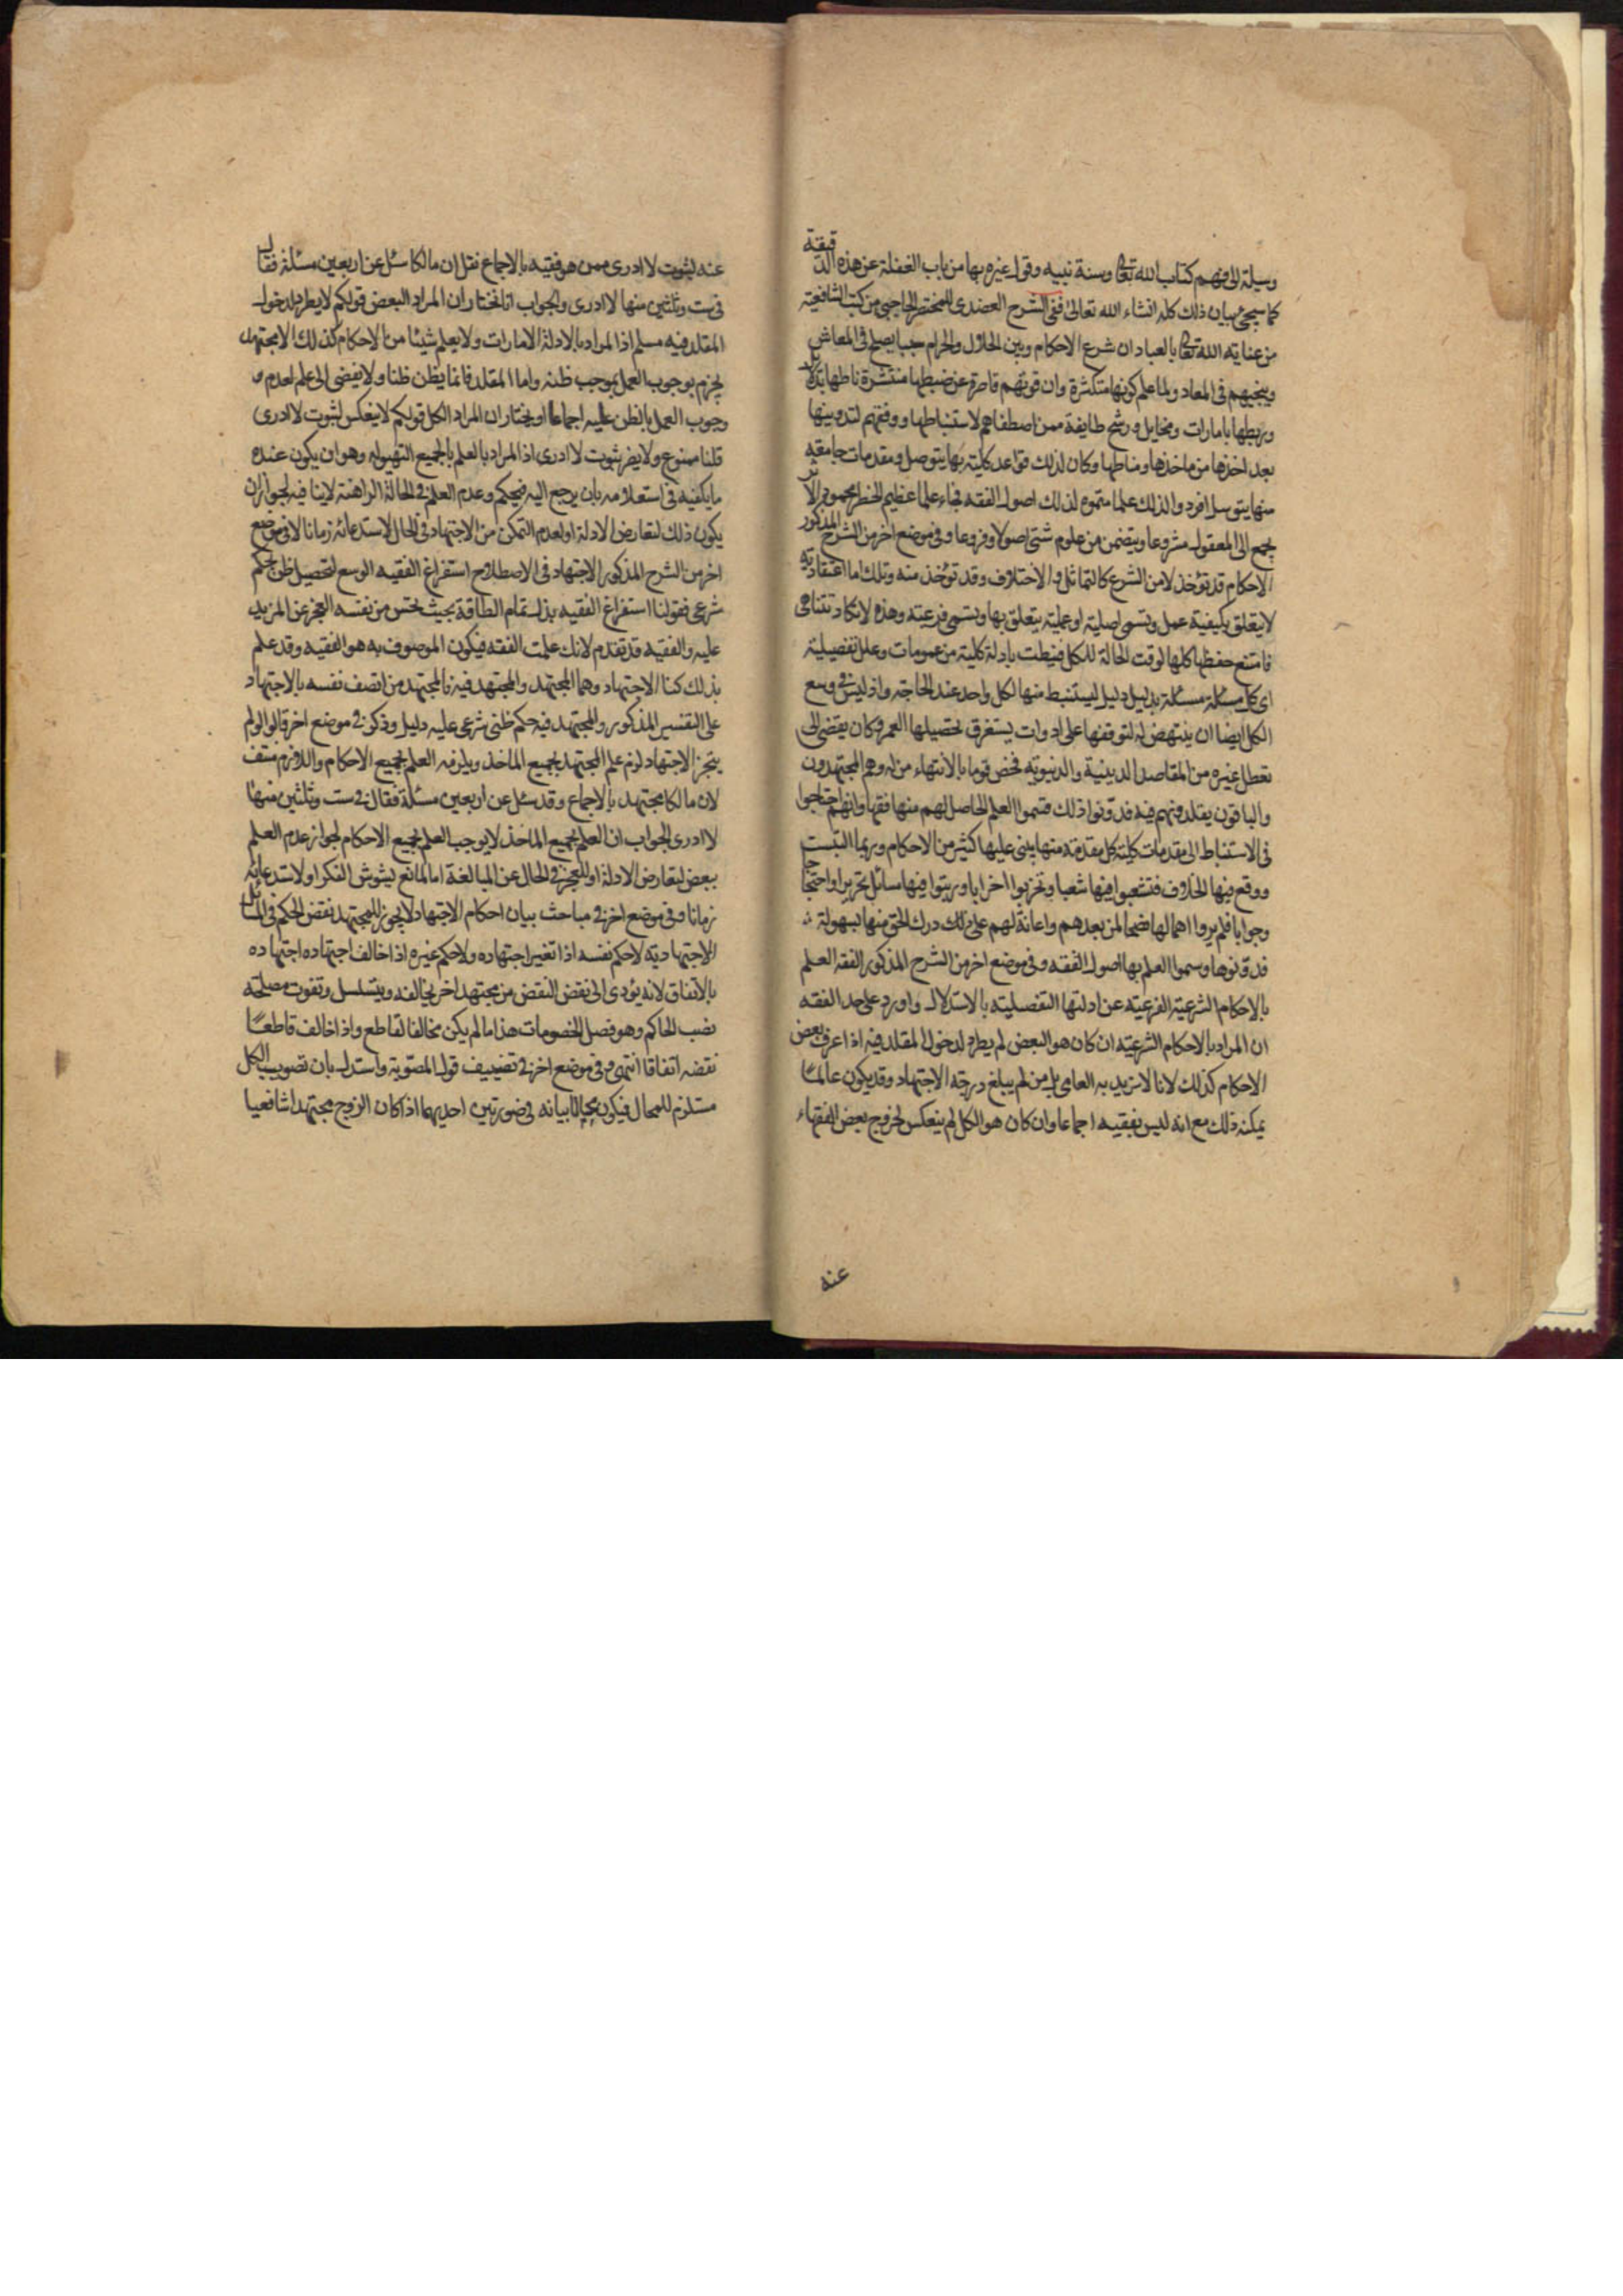 وسيلة الى فهم كتاب الله تعالى وسنة نبيه وقول غيره بها من باب الغفلة عن هذه الدقيقة
كما سيجئ بيان ذلك كله انشاء الله تعالى ففى الشرح العضدى للمختصر الحاجبى من كتب الشافعية
من عناية الله تعالى بالعباد ان شرع الاحكام وبين الحلال والحرام سببا يصلح فى المعاش
وينجيهم فى المعاد ولما علم كونها متكثرة وان قوتهم قاصرة عن ضبطها منتشرة ناطها بدلائل
وربطها بامارات ومخايل ورشح طايفة ممن اصطفاهم لاستنباطها ووفقهم لتدوينها
بعد اخذها من ماخذها ومناطها وكان لذلك قواعد كلية بها يتوصل ومقدمات جامعة
منها يتوسل افردوا لذلك علما سموه لذلك اصول الفقه فجاء علما عظيم الخطر محمود الاثر
يجمع الى المعقول مشروعا ويتضمن من علوم شتى اصولا وفروعا وفى موضع اخر من الشرح المذكور
الاحكام قد تؤخذ لا من الشرع كالتماثل والاختلاف وقد تؤخذ منه وتلك اما اعتقادية
لا يتعلق بكيفية عمل وتسمى اصلية او عملية يتعلق بها وتسمى فرعية وهذه لا تكاد تتناهى
فامتنع حفظها كلها لوقت الحالة للكل فنيطت بادلة كلية من عمومات وعلل تفصيلية
اى كل مسئلة مسئلة بدليل دليل ليستنبط منها لكل واحد عند الحاجة واذ ليس فى وسع
الكل ايضا ان ينتهض له لتوقفها على ادوات يستغرق تحصيلها العمر وكان يفضى الى
تعطل غيره من المقاصد الدينية والدنيوية فخص قوما بالانتهاء من له وهم المجتهدون
والباقون يقلدونهم فيه فدونوا ذلك فسموا العلم الحاصل لهم منها فقها وانهم احتاجوا
فى الاستنباط الى مقدمات كلية كل مقدمة منها يبنى عليها كثير من الاحكام وربما التبست
ووقع فيها الخلاف فتشعبوا فيها شعبا وتحزبوا احزابا ورتبوا فيها مسائل تحريرا واحتجاجا
وجوابا فلم يروا اهمالها نصحا لمن بعدهم واعانة لهم على ذلك درك الحق منها بسهولة
فدونوها وسموا العلم بها اصول الفقه وفى موضع اخر من الشرح المذكور الفقه العلم
بالاحكام الشرعية الفرعية عن ادلتها التفصيلية بالاستدلال واورد على حد الفقه
ان المراد بالاحكام الشرعية ان كان هو البعض لم يطرد لدخول المقلد فيه اذا عرف بعض
الاحكام كذلك لانا لا نريد به العامى بل من لم يبلغ درجة الاجتهاد وقد يكون عالما
يمكنه ذلك مع انه ليس بفقيه اجماعا وان كان هو الكل لم ينعكس لخروج بعض الفقهاء
عنه
عنه لثبوت لا ادرى ممن هو فقيه بالاجماع نقل ان مالكا سئل عن اربعين مسئلة فقال
فى ست وثلثين منها لا ادرى والجواب انا نختار ان المراد البعض قولكم لا يطرد لدخول
المقلد فيه مسلم اذا المراد بالادلة الامارات ولا يعلم شيئا من الاحكام كذلك الا مجتهد
يجزم بوجوب العمل بموجب ظنه واما المقلد فانما يظن ظنا ولا يفضى الى علم لعدم
وجوب العمل بالظن عليه اجماعا او يختار ان المراد الكل قولكم لا ينعكس لثبوت لا ادرى
قلنا ممنوع ولا يضر ثبوت لا ادرى اذ المراد بالعلم بالجميع التهيؤ له وهو ان يكون عنده
ما يكفيه فى استعلامه بان يرجع اليه فيحكم وعدم العلم فى الحالة الراهنة لا ينافيه لجواز ان
يكون ذلك لتعارض الادلة او لعدم التمكن من الاجتهاد فى الحال لاستدعائه زمانا لا فى موضع
اخر من الشرح المذكور الاجتهاد فى الاصطلاح استفراغ الفقيه الوسع لتحصيل ظن بحكم
شرعى فقولنا استفراغ الفقيه بذل تمام الطاقة بحيث يحس من نفسه العجز عن المزيد
عليه والفقيه قد تقدم لانك علمت الفقه فيكون الموصوف به هو الفقيه وقد علم
بذلك كنا الاجتهاد وهما المجتهد والمجتهد فيه فالمجتهد من اتصف نفسه بالاجتهاد
على التفسير المذكور والمجتهد فيه حكم ظنى شرعى عليه دليل وذكر فى موضع اخر قالوا لو لم
يتجز الاجتهاد لزم علم المجتهد بجميع الماخذ ويلزمه العلم بجميع الاحكام واللازم منتف
لان مالكا مجتهد بالاجماع وقد سئل عن اربعين مسئلة فقال فى ست وثلثين منها
لا ادرى الجواب ان العلم بجميع الماخذ لا يوجب العلم بجميع الاحكام لجواز عدم العلم
ببعض لتعارض الادلة او للعجز فى الحال عن المبالغة اما لمانع يشوش الفكر او لاستدعائه
زمانا وفى موضع اخر فى مباحث بيان احكام الاجتهاد لا يجوز للمجتهد نقض الحكم فى المسائل
الاجتهادية لا حكم نفسه اذا تغير اجتهاده ولا حكم غيره اذا خالف اجتهاده اجتهاده
بالاتفاق لانه يؤدى الى نقض النقض من مجتهد اخر يخالفه ويتسلسل وتفوت مصلحة
نصب الحاكم وهو فصل الخصومات هذا ما لم يكن مخالفا لقاطع واذا خالف قاطعا
نقضه اتفاقا انتهى وفى موضع اخر فى تضعيف قول المصوبة واستدل بان تصويب الكل
مستلزم للمحال فيكون محالا بيانه فى صورتين احديهما اذا كان الزوج مجتهدا شافعيا